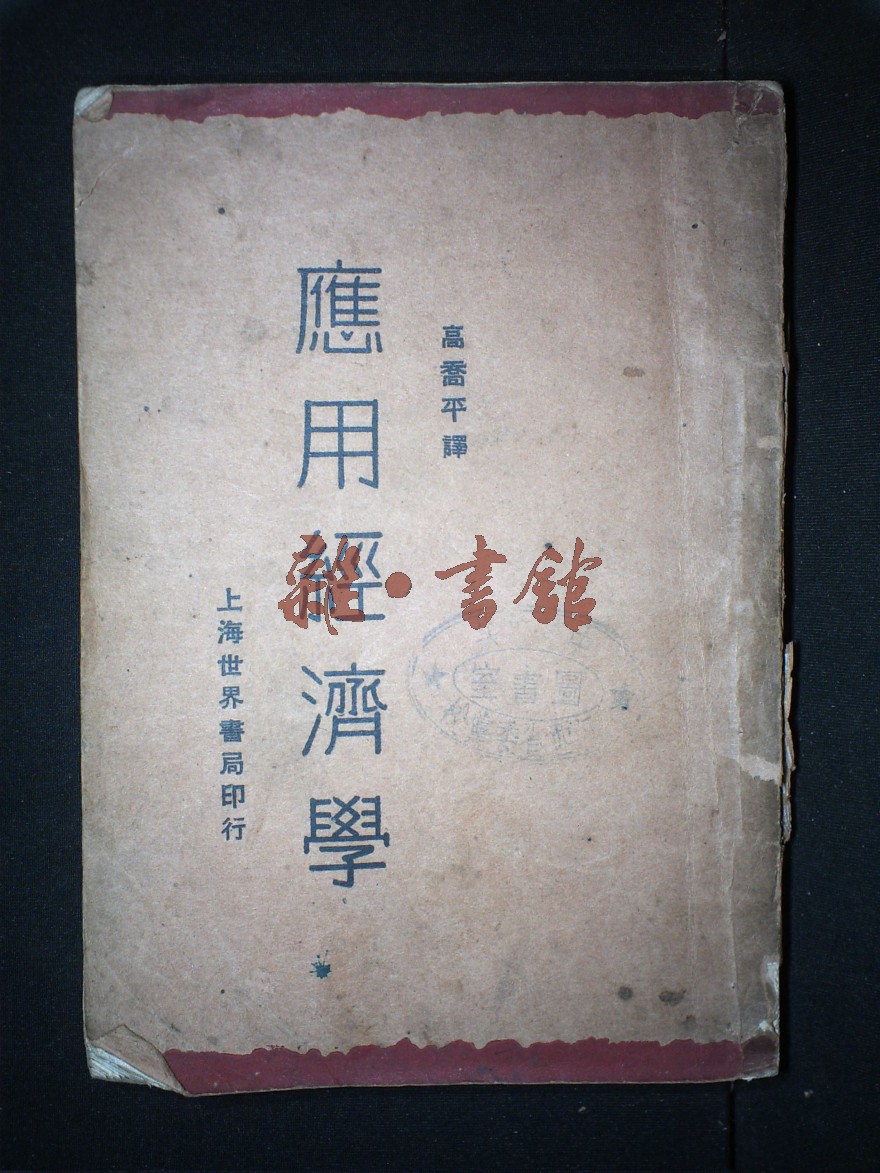 高喬平譯
應用經濟學
上海世界書局印行
雜·書館
圖書室